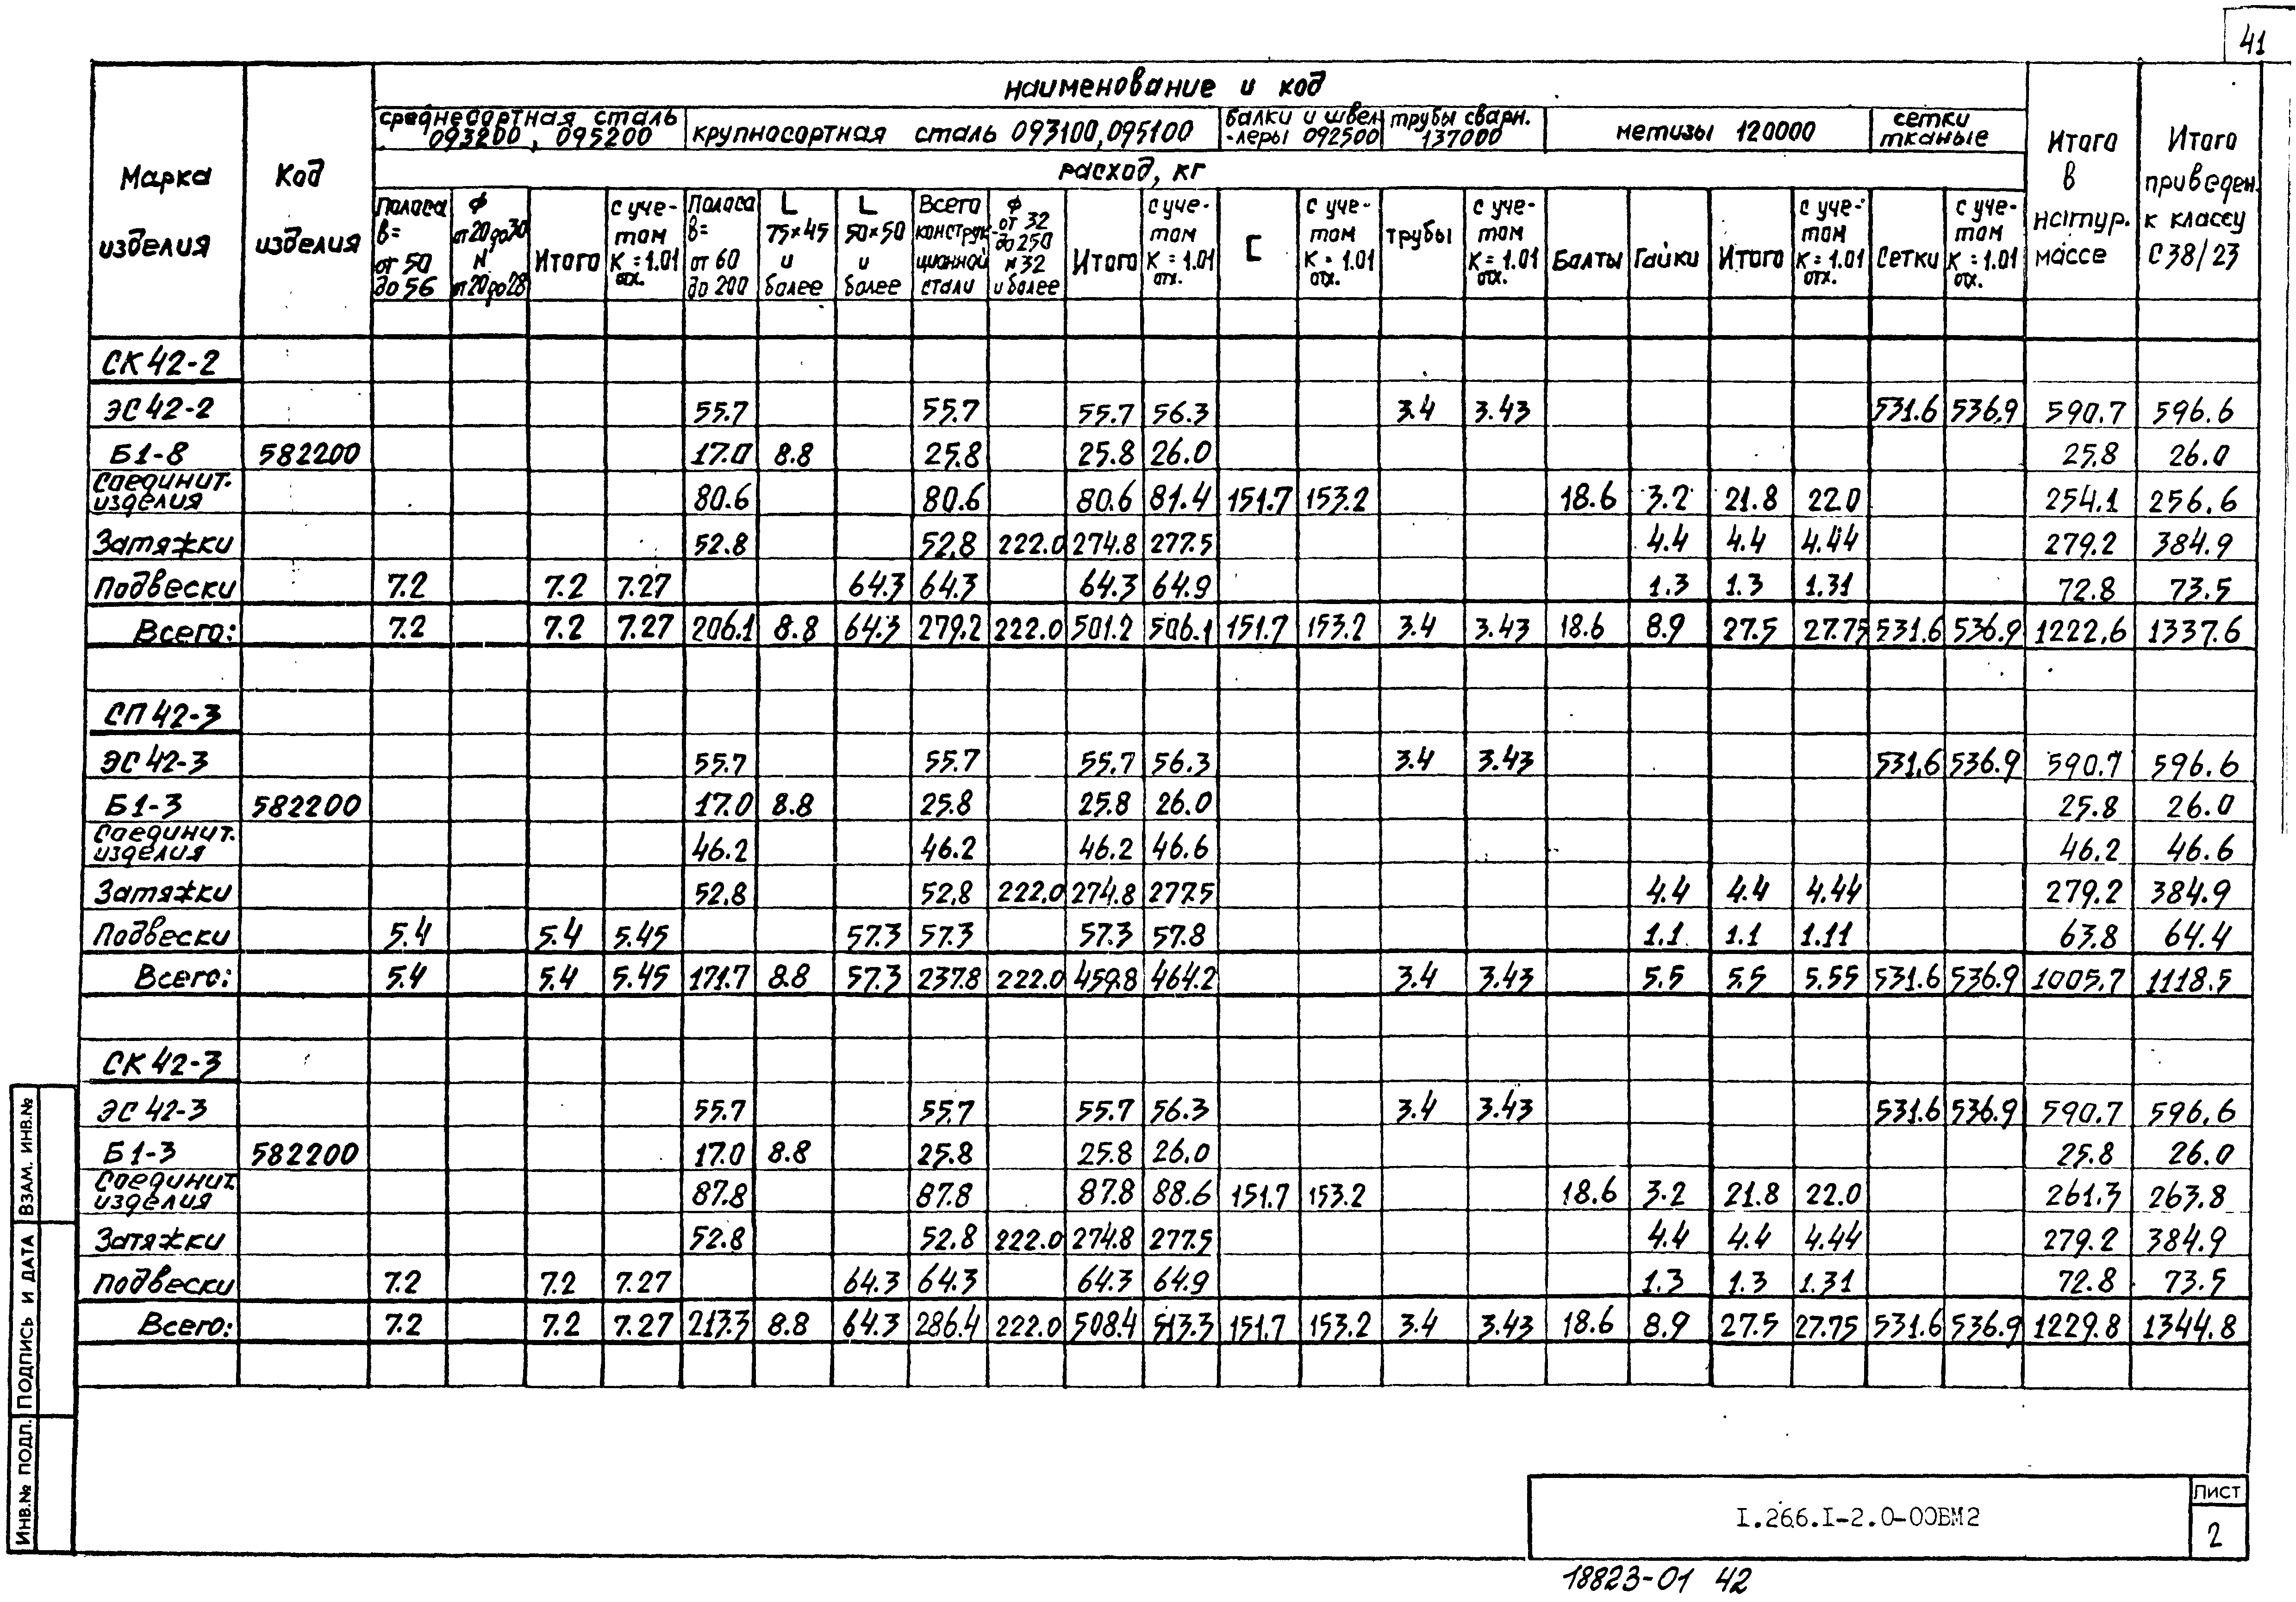 41
Марка изделия
Код изделия
наименование и код
среднесортная сталь 093200, 095200
крупносортная сталь 093100, 095100
балки и швел-леры 092500
трубы сварн. 137000
метизы 120000
сетки тканые
Итого в натур. массе
Итого приведен. к классу С38/23
расход, кг
Полоса в= от 50 до 56
Ф от 20 до 30 и от 20 до 28
Итого
с уче-том К=1.01 отх.
Полоса в= от 60 до 200
L 75×45 и более
L 50×50 и более
Всего конструк-ционной стали
Ф от 32 до 250 и 32 и более
Итого
с уче-том К=1.01 отх.
[
с уче-том К=1.01 отх.
трубы
с уче-том К=1.01 отх.
Болты
Гайки
Итого
с уче-том К=1.01 отх.
Сетки
с уче-том К=1.01 отх.
СК 42-2
ЭС 42-2 55.7 55.7 55.7 56.3 3.4 3.43 531.6 536.9 590.7 596.6
Б1-8 582200 17.0 8.8 25.8 25.8 26.0 25.8 26.0
Соединит. изделия 80.6 80.6 80.6 81.4 151.7 153.2 18.6 3.2 21.8 22.0 254.1 256.6
Затяжки 52.8 52.8 222.0 274.8 277.5 4.4 4.4 4.44 279.2 384.9
Подвески 7.2 7.2 7.27 64.3 64.3 64.3 64.9 1.3 1.3 1.31 72.8 73.5
Всего: 7.2 7.2 7.27 206.1 8.8 64.3 279.2 222.0 501.2 506.1 151.7 153.2 3.4 3.43 18.6 8.9 27.5 27.75 531.6 536.9 1222.6 1337.6
СП 42-3
ЭС 42-3 55.7 55.7 55.7 56.3 3.4 3.43 531.6 536.9 590.7 596.6
Б1-3 582200 17.0 8.8 25.8 25.8 26.0 25.8 26.0
Соединит. изделия 46.2 46.2 46.2 46.6 46.2 46.6
Затяжки 52.8 52.8 222.0 274.8 277.5 4.4 4.4 4.44 279.2 384.9
Подвески 5.4 5.4 5.45 57.3 57.3 57.3 57.8 1.1 1.1 1.11 63.8 64.4
Всего: 5.4 5.4 5.45 171.7 8.8 57.3 237.8 222.0 459.8 464.2 3.4 3.43 5.5 5.5 5.55 531.6 536.9 1005.7 1118.5
СК 42-3
ЭС 42-3 55.7 55.7 55.7 56.3 3.4 3.43 531.6 536.9 590.7 596.6
Б1-3 582200 17.0 8.8 25.8 25.8 26.0 25.8 26.0
Соединит. изделия 87.8 87.8 87.8 88.6 151.7 153.2 18.6 3.2 21.8 22.0 261.3 263.8
Затяжки 52.8 52.8 222.0 274.8 277.5 4.4 4.4 4.44 279.2 384.9
Подвески 7.2 7.2 7.27 64.3 64.3 64.3 64.9 1.3 1.3 1.31 72.8 73.5
Всего: 7.2 7.2 7.27 213.3 8.8 64.3 286.4 222.0 508.4 513.3 151.7 153.2 3.4 3.43 18.6 8.9 27.5 27.75 531.6 536.9 1229.8 1344.8
Инв.№ подл. Подпись и дата Взам. инв.№
I.266.I-2.0-00ВМ2
Лист
2
18823-01 42